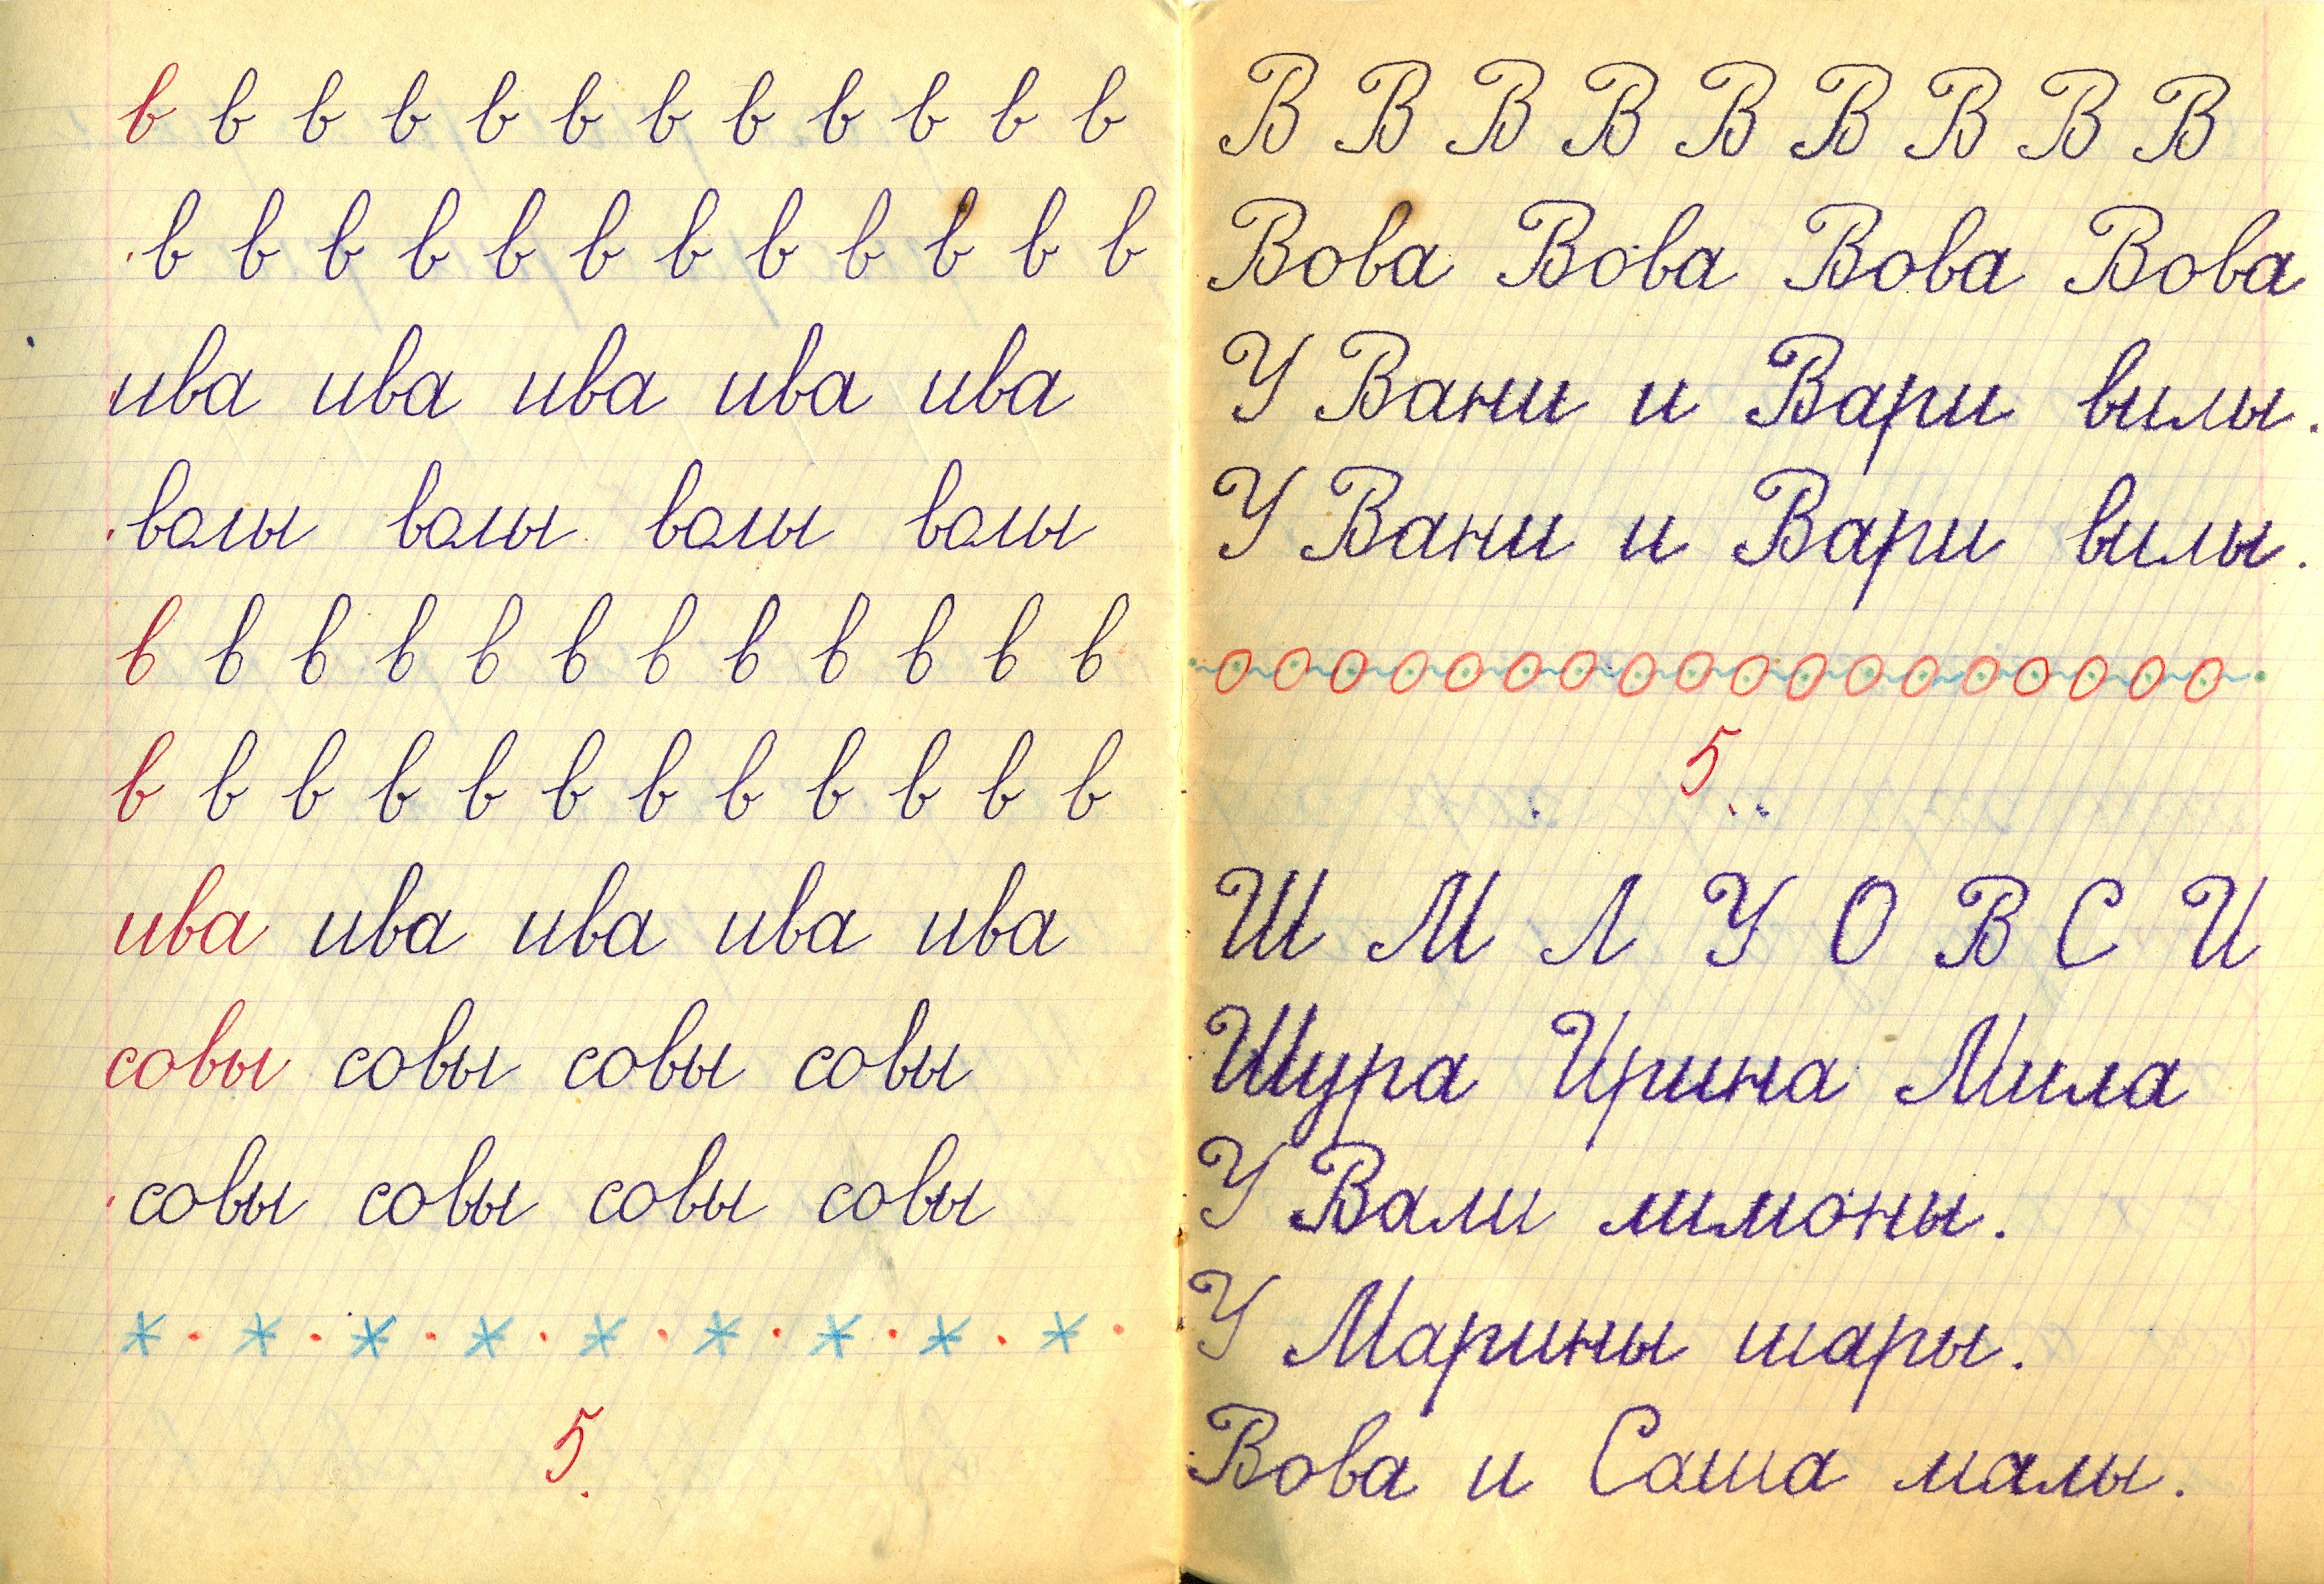 в в в в в в в в в в в в
в в в в в в в в в в в в
ива ива ива ива ива
волы волы волы волы
в в в в в в в в в в в в
в в в в в в в в в в в в
ива ива ива ива ива
совы совы совы совы
совы совы совы совы
5
В В В В В В В В В
Вова Вова Вова Вова
У Вани и Вари вилы.
У Вани и Вари вилы.
5
Ш М Л У О В С И
Шура Ирина Мила
У Вали лимоны.
У Марины шары.
Вова и Саша малы.